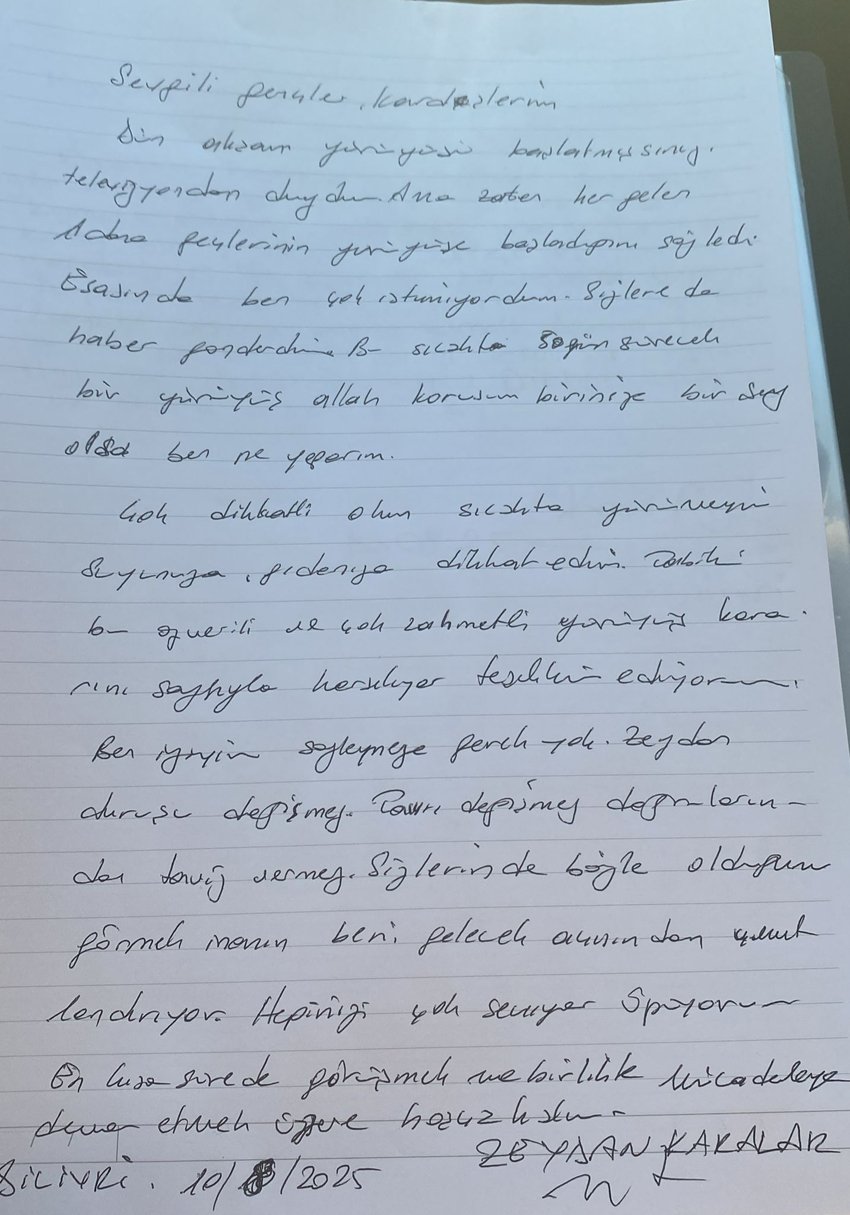 Sevgili gençler, kardeşlerim
Dün akşam yürüyüşü başlatmışsınız.
televizyondan duydum. Ama zaten her gelen
Adana gençlerinin yürüyüşe başladığını söyledi.
Esasında ben çok istemiyordum. Sizlere de
haber gönderdim. Bu sıcakta 3 gün sürecek
bir yürüyüş allah korusun birinize bir şey
olsa ben ne yaparım.
Çok dikkatli olun sıcakta yürümeyin
Suyunuza, gıdanıza dikkat edin. Tabiki
bu özverili ve çok zahmetli yürüyüş kara-
rını saygıyla karşılıyor teşekkür ediyorum.
Ben iyiyim söylemeye gerek yok. Zeydan
duruşu değişmez. Tavrı değişmez doğruların-
dan taviz vermez. Sizlerinde böyle olduğunu
görmek inanın beni gelecek açısından umut
lendiriyor. Hepinizi çok seviyor öpüyorum
En kısa sürede görüşmek ve birlikte mücadeleye
devam etmek üzere hoşçakalın.
ZEYDAN KARALAR
SİLİVRİ. 10/8/2025